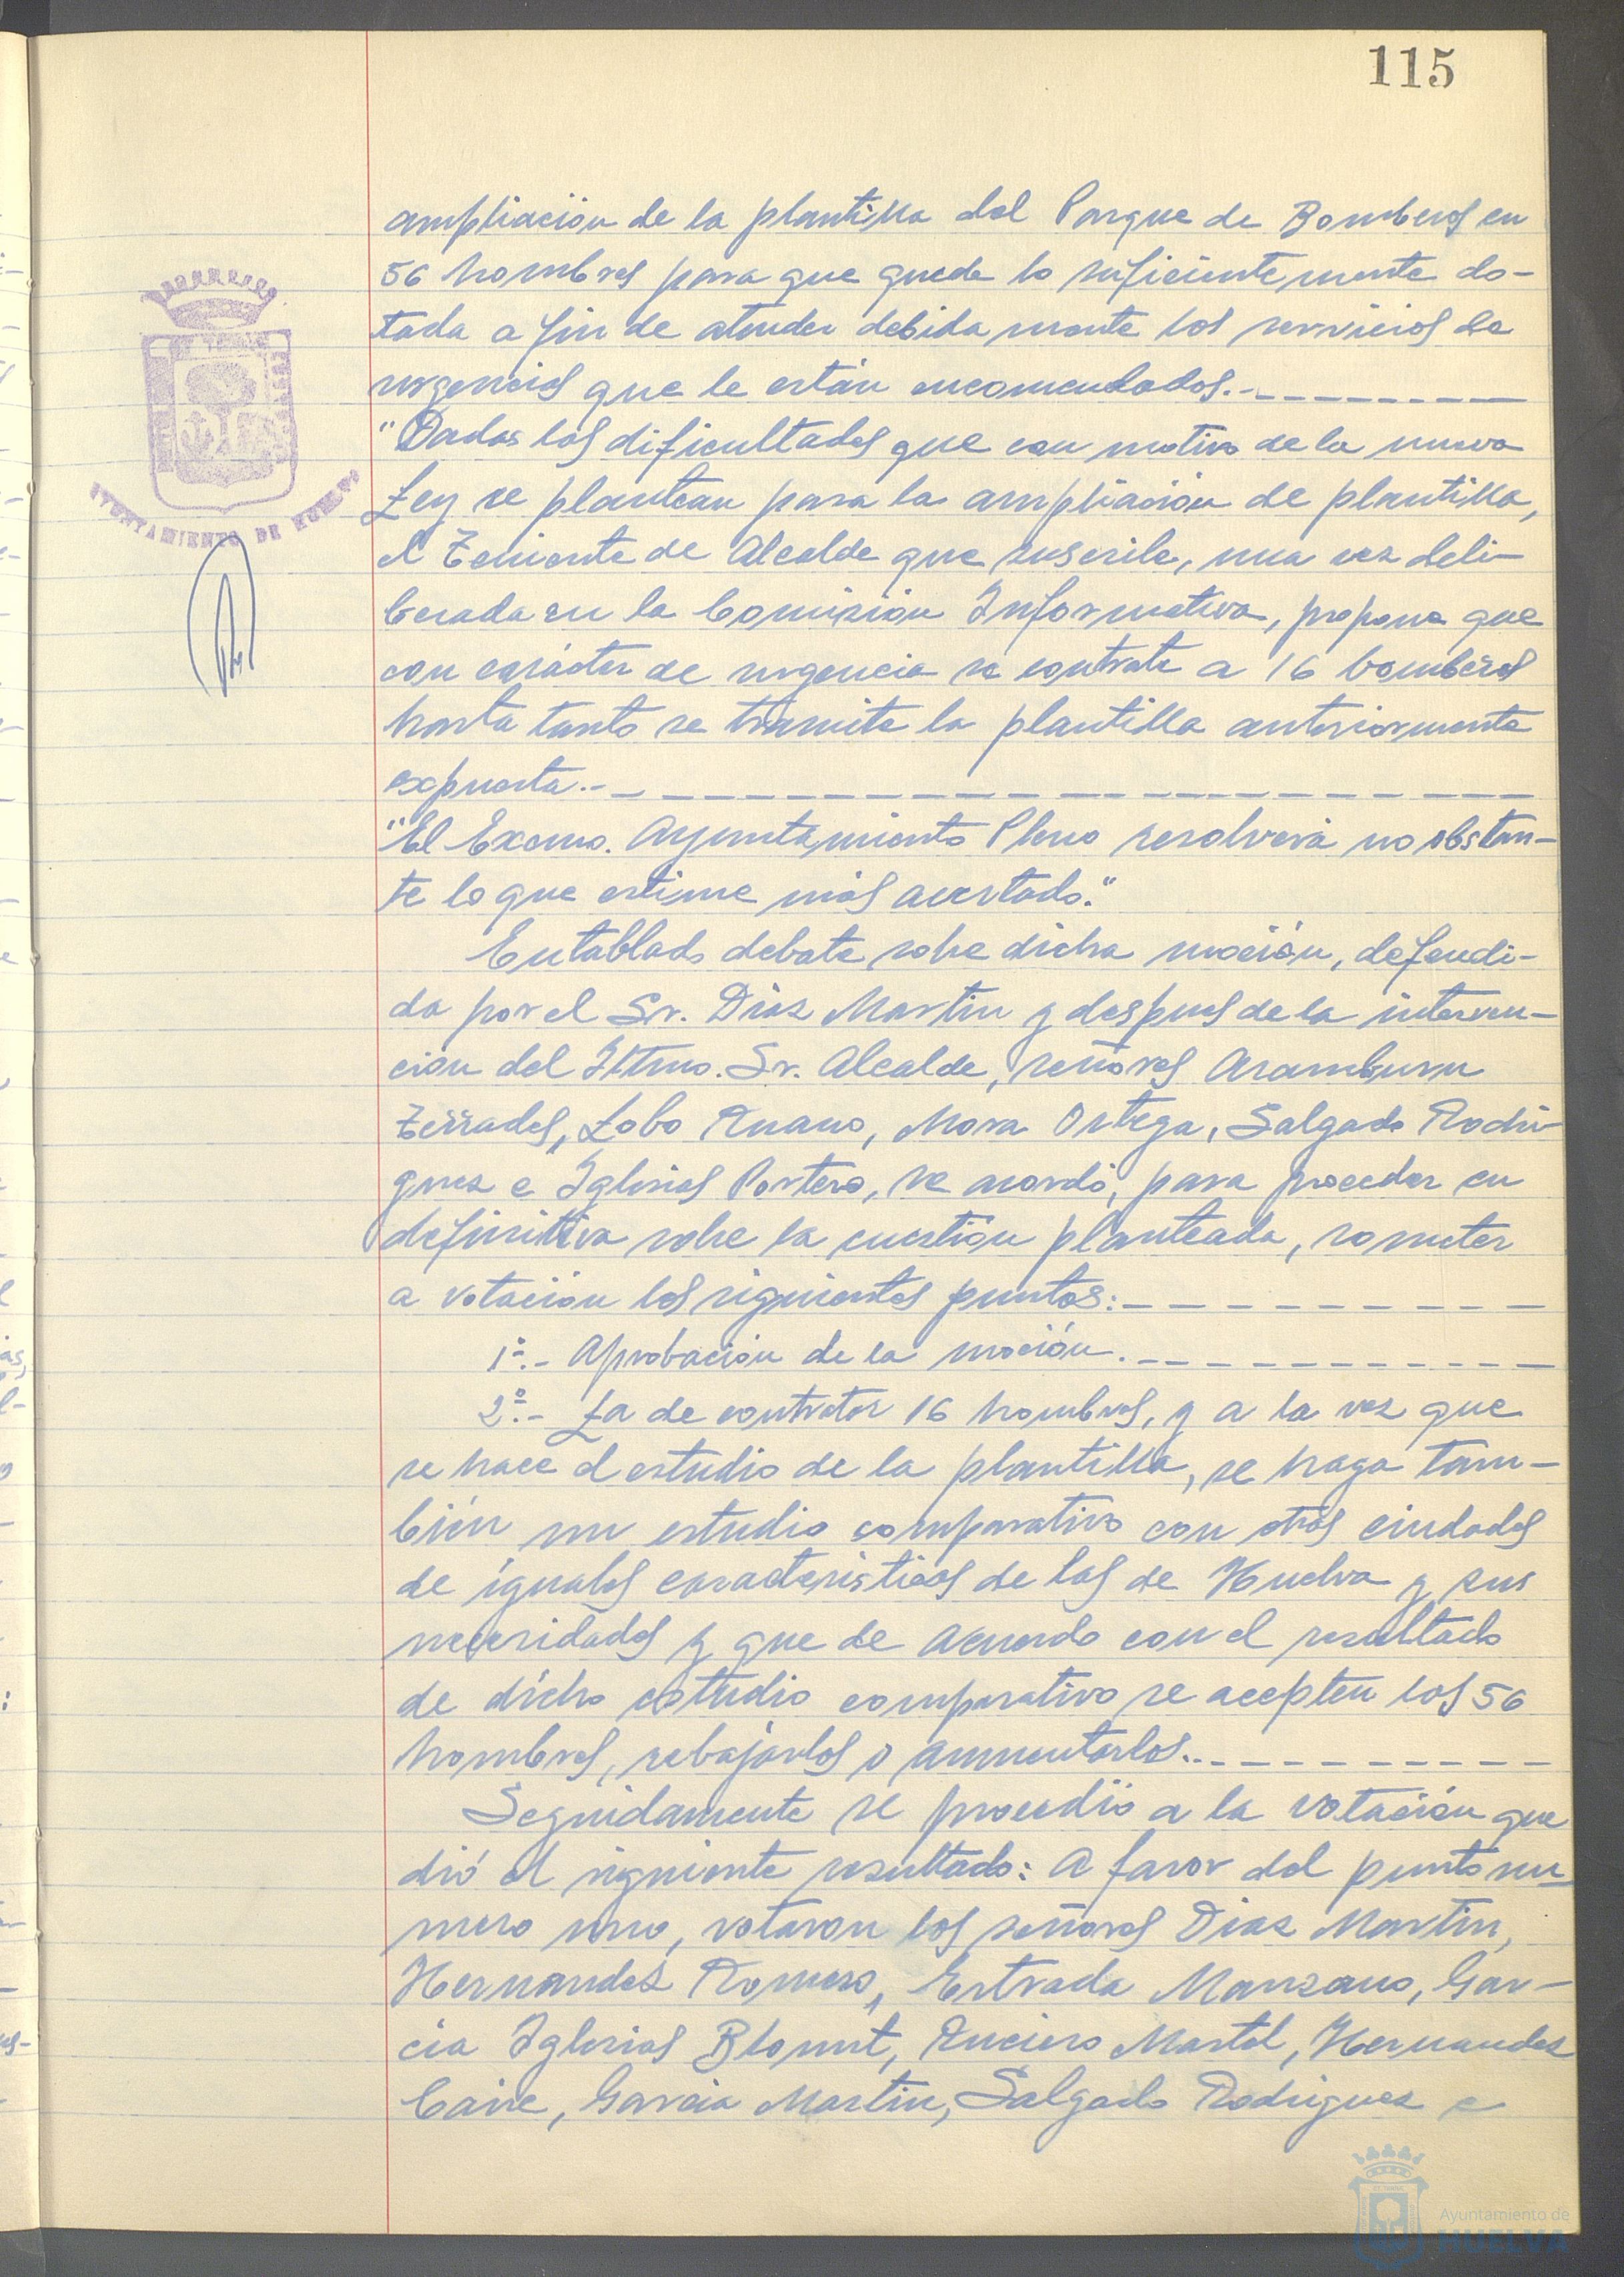 115
ampliación de la plantilla del Parque de Bomberos en
56 hombres para que quede lo suficientemente do-
tada a fin de atender debidamente los servicios de
urgencias que le están encomendados.-
"Dadas las dificultades que con motivo de la nueva
Ley se plantean para la ampliación de plantilla,
el Teniente de Alcalde que suscribe, una vez deli-
berada en la Comisión Informativa, propone que
con carácter de urgencia se contrate a 16 bomberos
hasta tanto se tramite la plantilla anteriormente
expuesta.-
"El Excmo. Ayuntamiento Pleno resolverá no obstan-
te lo que estime más acertado."
Entablado debate sobre dicha moción, defendi-
da por el Sr. Díaz Martín y despues de la interven-
ción del Iltmo. Sr. Alcalde, señores Aramburu
Terrades, Lobo Ruano, Mora Ortega, Salgado Rodrí-
guez e Iglesias Portero, se acordó, para proceder en
definitiva sobre la cuestión planteada, someter
a votación los siguientes puntos:-
1º.- Aprobación de la moción.
2º.- La de contratar 16 hombres, y a la vez que
se hace el estudio de la plantilla, se haga tam-
bién un estudio comparativo con otras ciudades
de iguales características de las de Huelva y sus
necesidades y que de acuerdo con el resultado
de dicho estudio comparativo se acepten los 56
hombres, rebajarlos o aumentarlos.-
Seguidamente se procedió a la votación que
dió el siguiente resultado: A favor del punto nu-
mero uno, votaron los señores Diaz Martin,
Hernandez Romero, Estrada Manzano, Gar-
cía Iglesias Blount, Anciero Martel, Hernandez
Caire, García Martin, Salgado Rodriguez e
AYUNTAMIENTO DE HUELVA
Ayuntamiento de
HUELVA